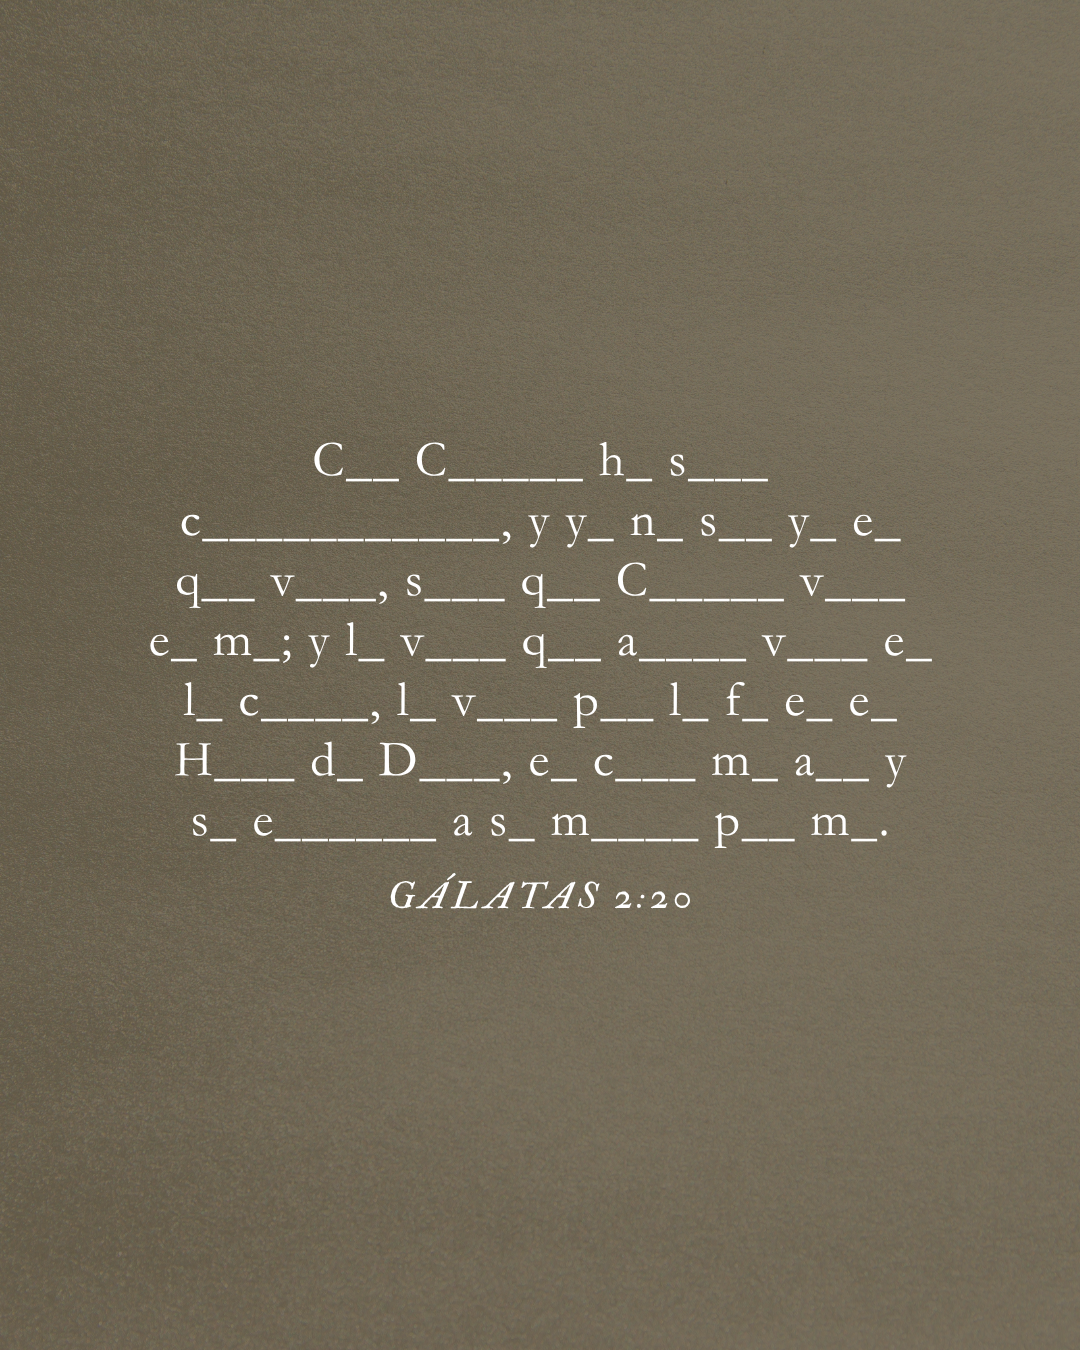 C__ C_____ h_ s___
c___________, y y_ n_ s__ y_ e_
q__ v___, s___ q__ C_____ v___
e_ m_; y l_ v___ q__ a____ v___ e_
l_ c____, l_ v___ p__ l_ f_ e_ e_
H___ d_ D___, e_ c___ m_ a__ y
s_ e______ a s_ m____ p__ m_.
GÁLATAS 2:20